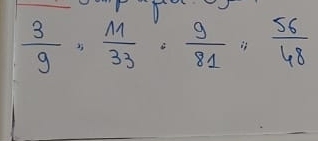 3/9 ; 11/33 ; 9/81 ; 56/48